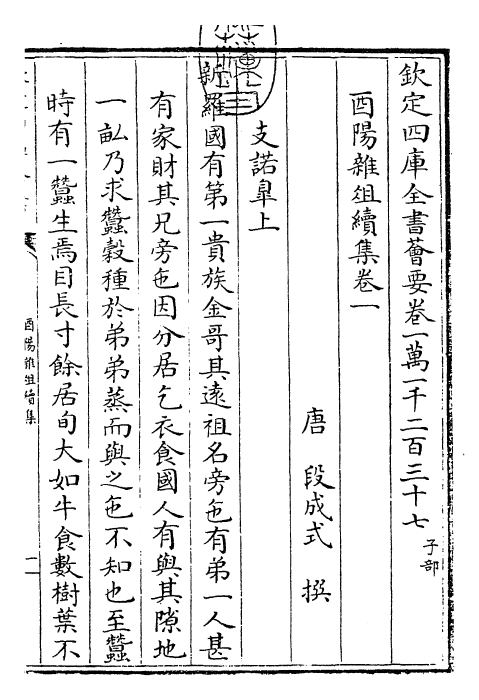 欽定四庫全書薈要卷一萬一千二百三十七 子部
酉陽雜俎續集卷一
唐 段成式 撰
支諾臯上
新羅國有第一貴族金哥其遠祖名旁㐌有弟一人甚
有家財其兄旁㐌因分居乞衣食國人有與其隙地
一畝乃求蠶穀種於弟弟蒸而與之㐌不知也至蠶
時有一蠶生焉目長寸餘居旬大如牛食數樹葉不
酉陽雜俎續集
一